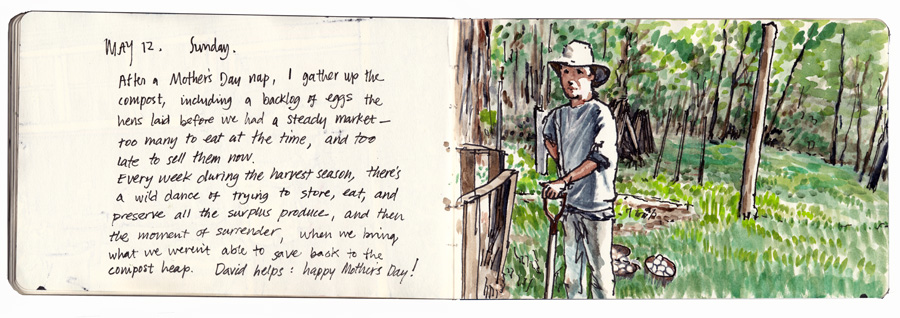 MAY 12. Sunday.
After a Mother's Day nap, I gather up the
compost, including a backlog of eggs the
hens laid before we had a steady market —
too many to eat at the time, and too
late to sell them now.
Every week during the harvest season, there's
a wild dance of trying to store, eat, and
preserve all the surplus produce, and then
the moment of surrender, when we bring
what we weren't able to save back to the
compost heap. David helps : happy Mother's Day!